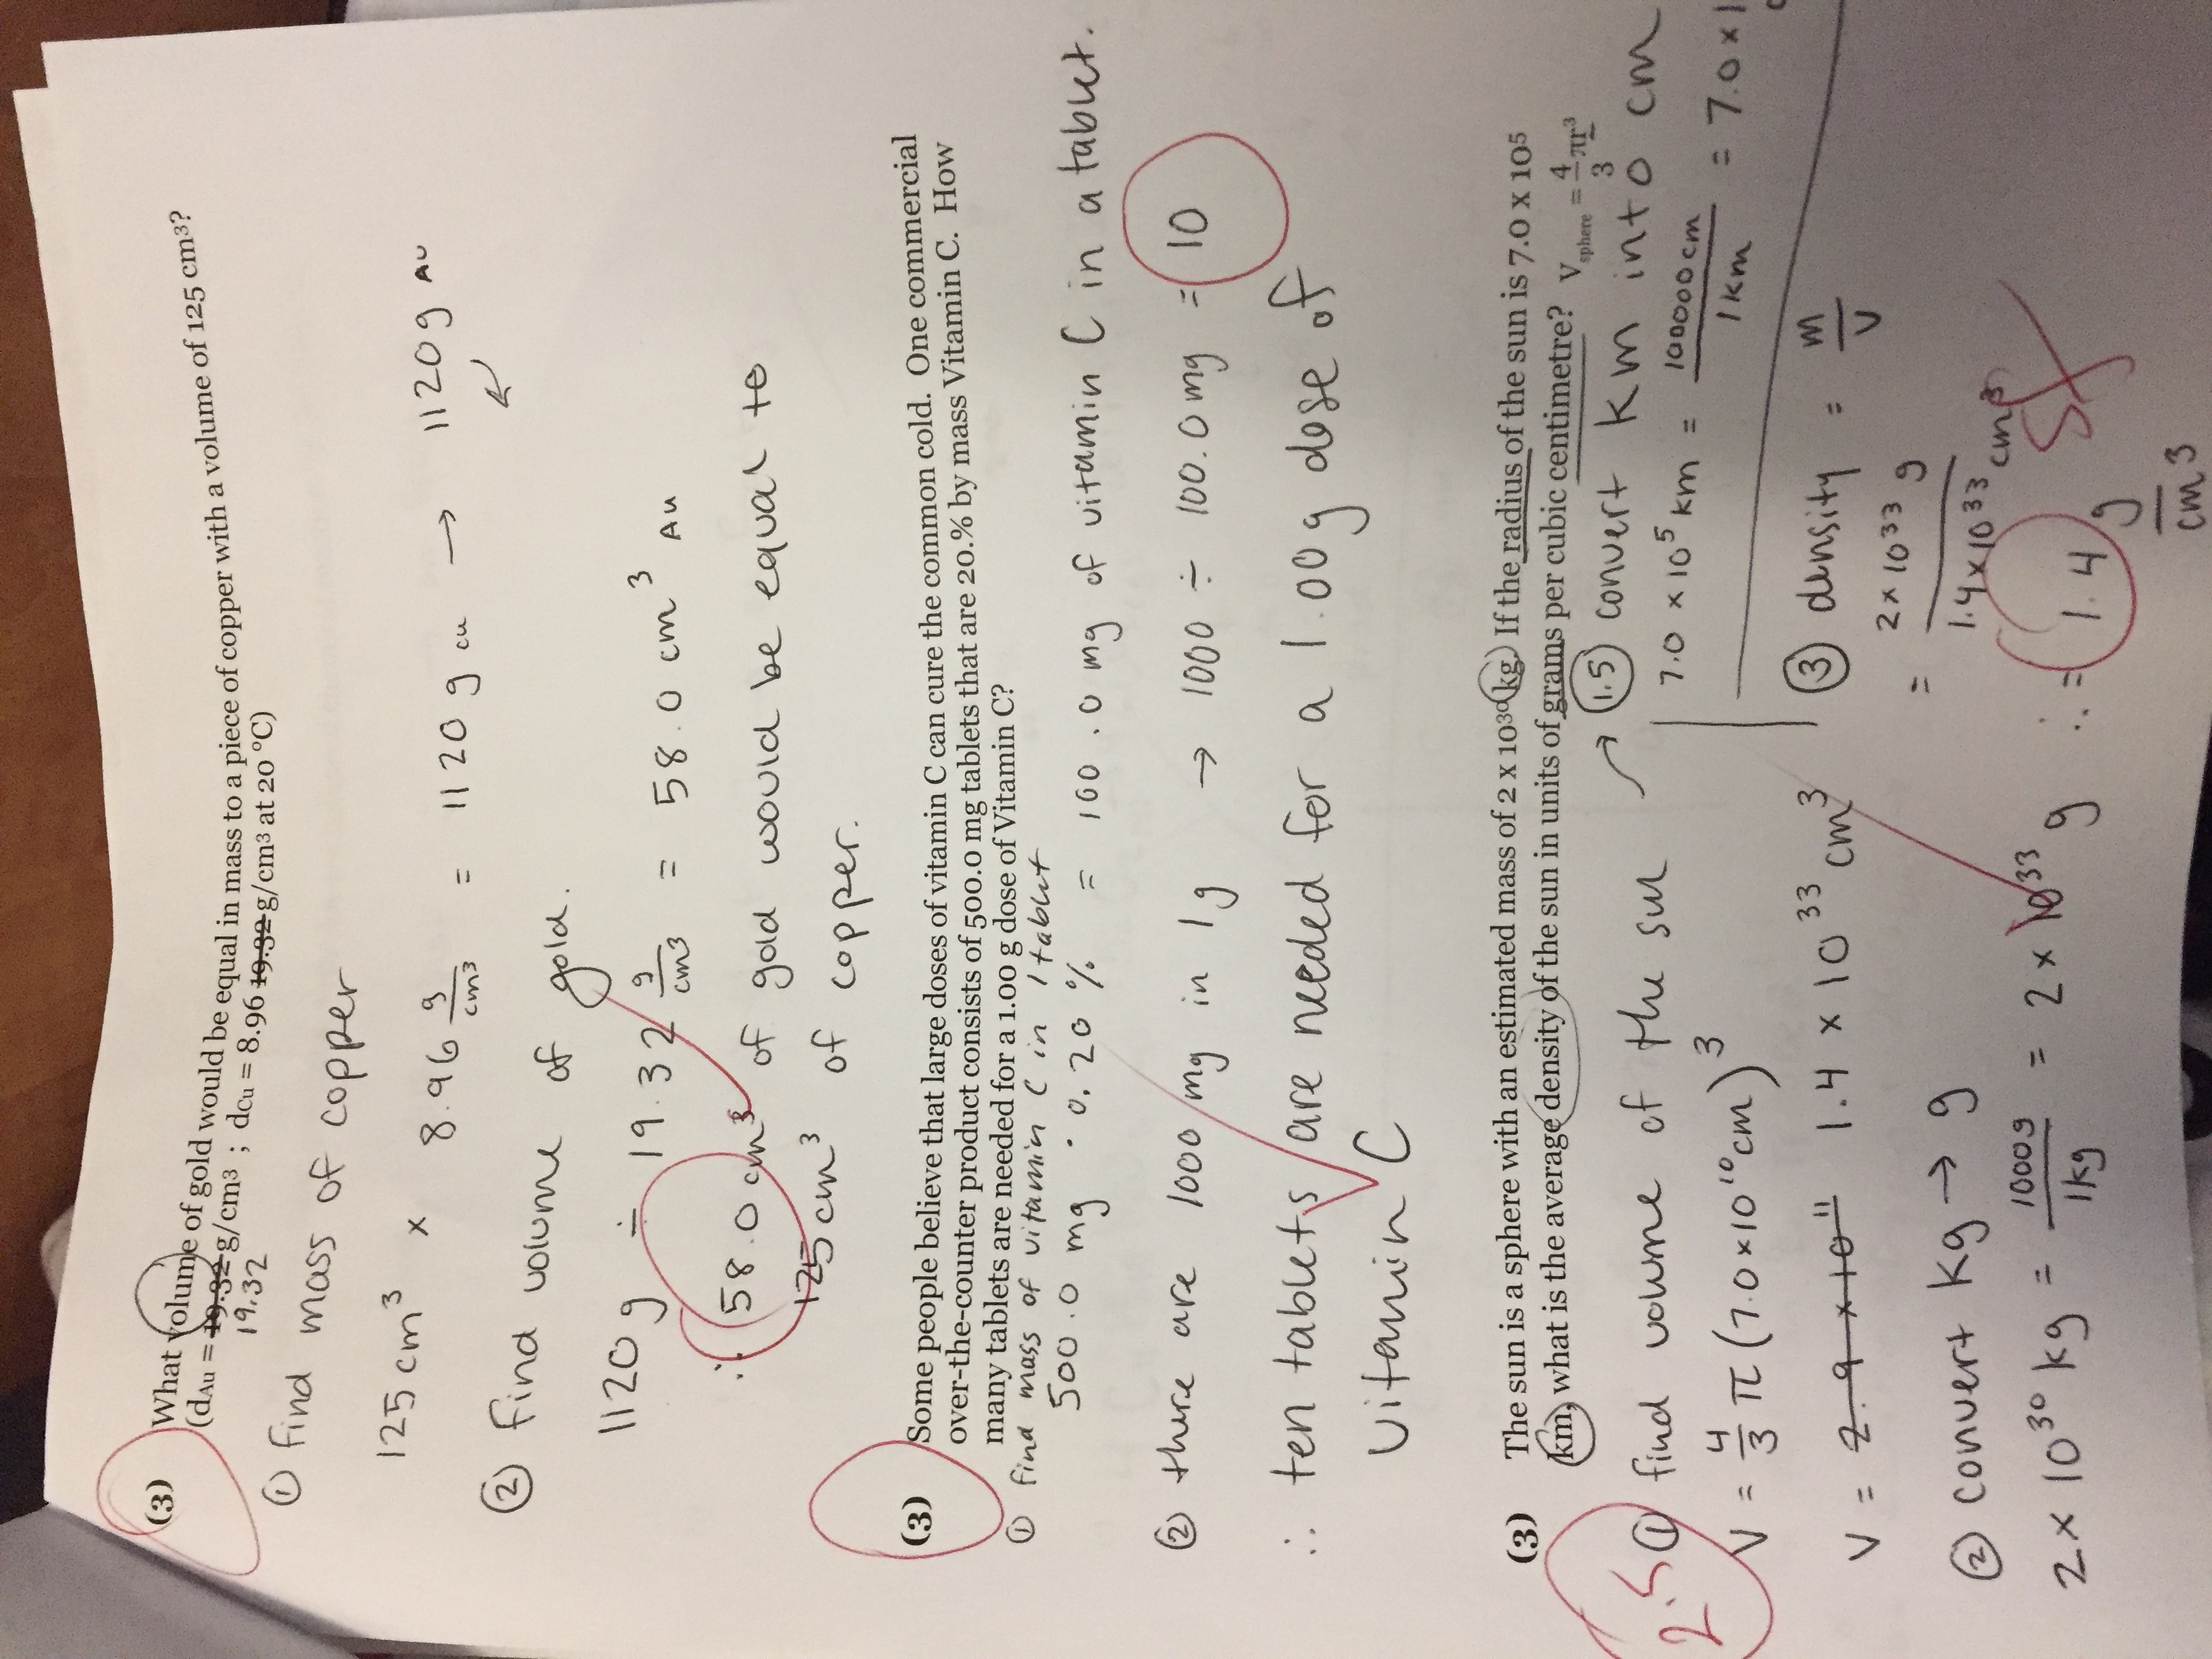 (3) What volume of gold would be equal in mass to a piece of copper with a volume of 125 cm³?
(dAu = 19.32 g/cm3 ; dCu = 8.96 19.32 g/cm3 at 20 °C)
19.32
① find mass of copper
125 cm³ × 8.96 g/cm³ = 1120 g cu → 1120 g Au
② find volume of gold.
1120 g ÷ 19.32 g/cm³ = 58.0 cm³ Au
∴ 58.0 cm³ of gold would be equal to
125 cm³ of copper.
(3) Some people believe that large doses of vitamin C can cure the common cold. One commercial
over-the-counter product consists of 500.0 mg tablets that are 20.% by mass Vitamin C. How
many tablets are needed for a 1.00 g dose of Vitamin C?
① find mass of vitamin C in 1 tablet
500.0 mg · 0.20 % = 100.0 mg of vitamin C in a tablet.
② there are 1000 mg in 1g → 1000 ÷ 100.0 mg = 10
∴ ten tablets are needed for a 1.00 g dose of
vitamin C
(3) The sun is a sphere with an estimated mass of 2 x 10³⁰ kg. If the radius of the sun is 7.0 x 10⁵
km, what is the average density of the sun in units of grams per cubic centimetre? Vsphere = 4/3 πr³
2.5
① find volume of the sun
V = 4/3 π (7.0 × 10¹⁰ cm)³
V = 2.9 × 10¹¹ 1.4 × 10³³ cm³
② convert kg → g
2 × 10³⁰ kg = 1000g/1kg = 2 × 10³³ g
1.5 convert km into cm
7.0 × 10⁵ km = 100000 cm/1 km = 7.0 × 1
③ density = m/V
= 2 × 10³³ g / 1.4 × 10³³ cm³
∴ = 1.4 g/cm³
SF